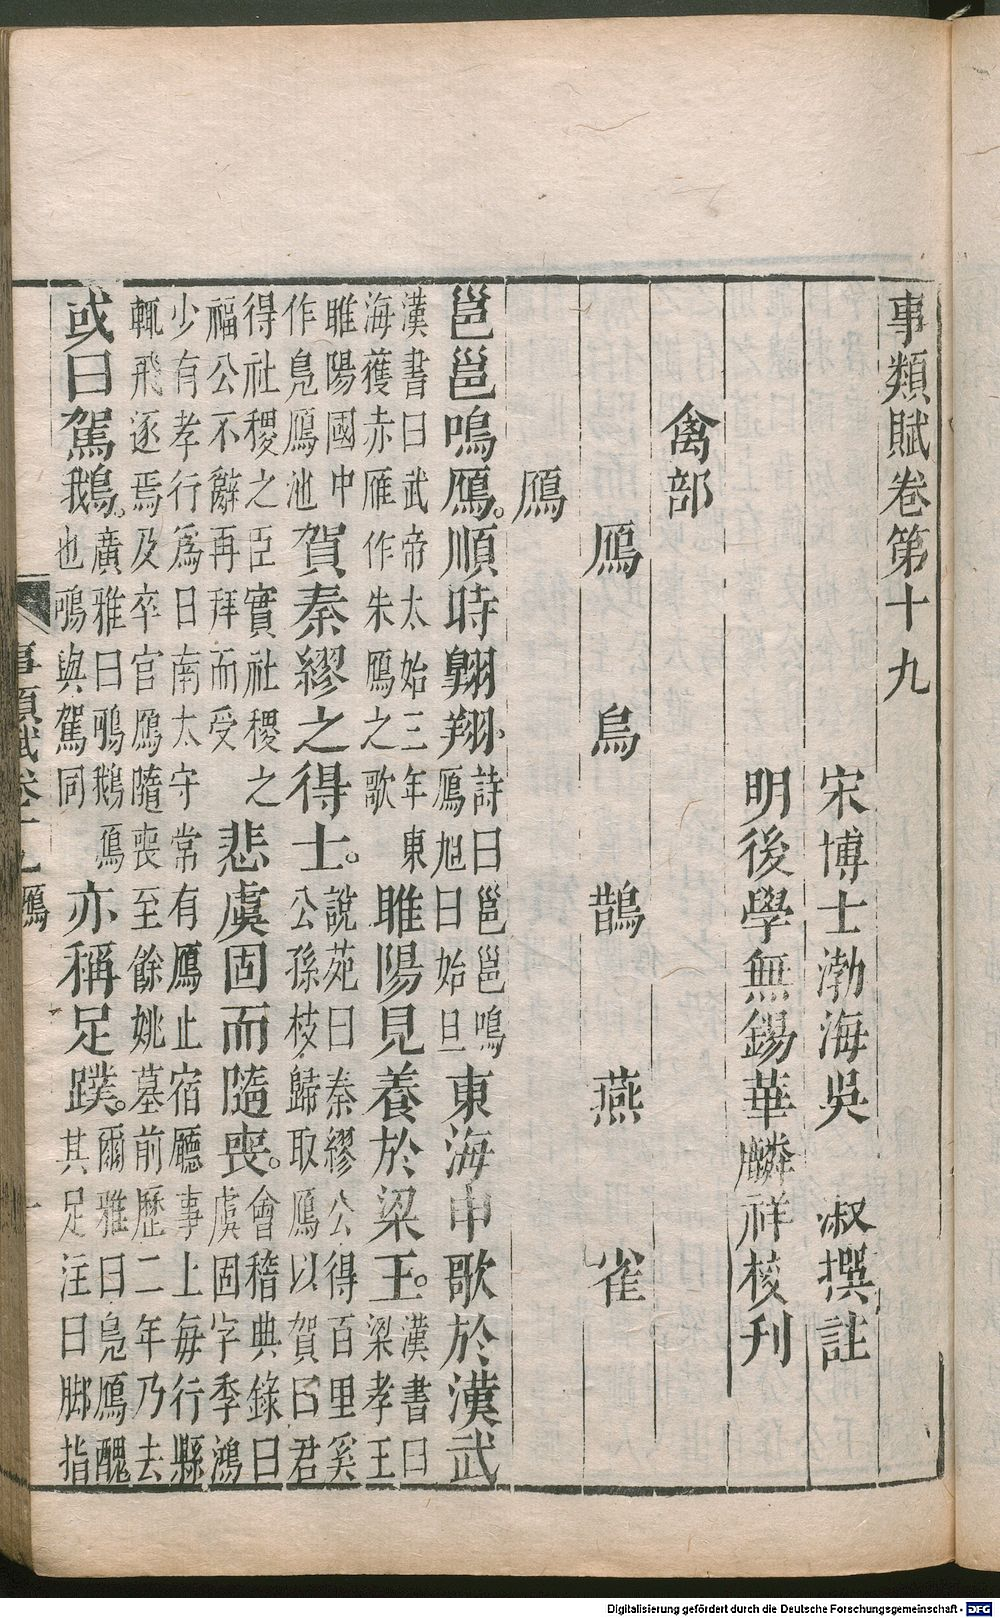 事類賦卷第十九
宋博士渤海吳　淑撰註
明後學無錫華麟祥校刊
禽部
鴈　烏　鵲　燕　雀
鴈
邕邕鳴鴈。順時翺翔、詩曰邕邕鳴鴈旭日始旦東海申歌於漢武
漢書曰武帝太始三年東海獲赤雁作朱鴈之歌睢陽見養於梁王。漢書曰梁孝王
睢陽國中作鳧鴈池賀秦繆之得士。說苑曰秦繆公得百里奚公孫枝歸取鴈以賀曰君
得社稷之臣實社稷之福公不辭再拜而受悲虞固而隨喪。會稽典錄曰虞固字季鴻
少有孝行爲日南太守常有鴈止宿廳事上每行縣輒飛逐焉及卒官鴈隨喪至餘姚墓前歷二年乃去
或曰駕鵝。廣雅曰鳴鵝鴈也鳴與駕同亦稱足蹼。爾雅曰鳧鴈醜其足注曰脚指
事類賦卷十九　鴈　一
Digitalisierung gefördert durch die Deutsche Forschungsgemeinschaft - DFG